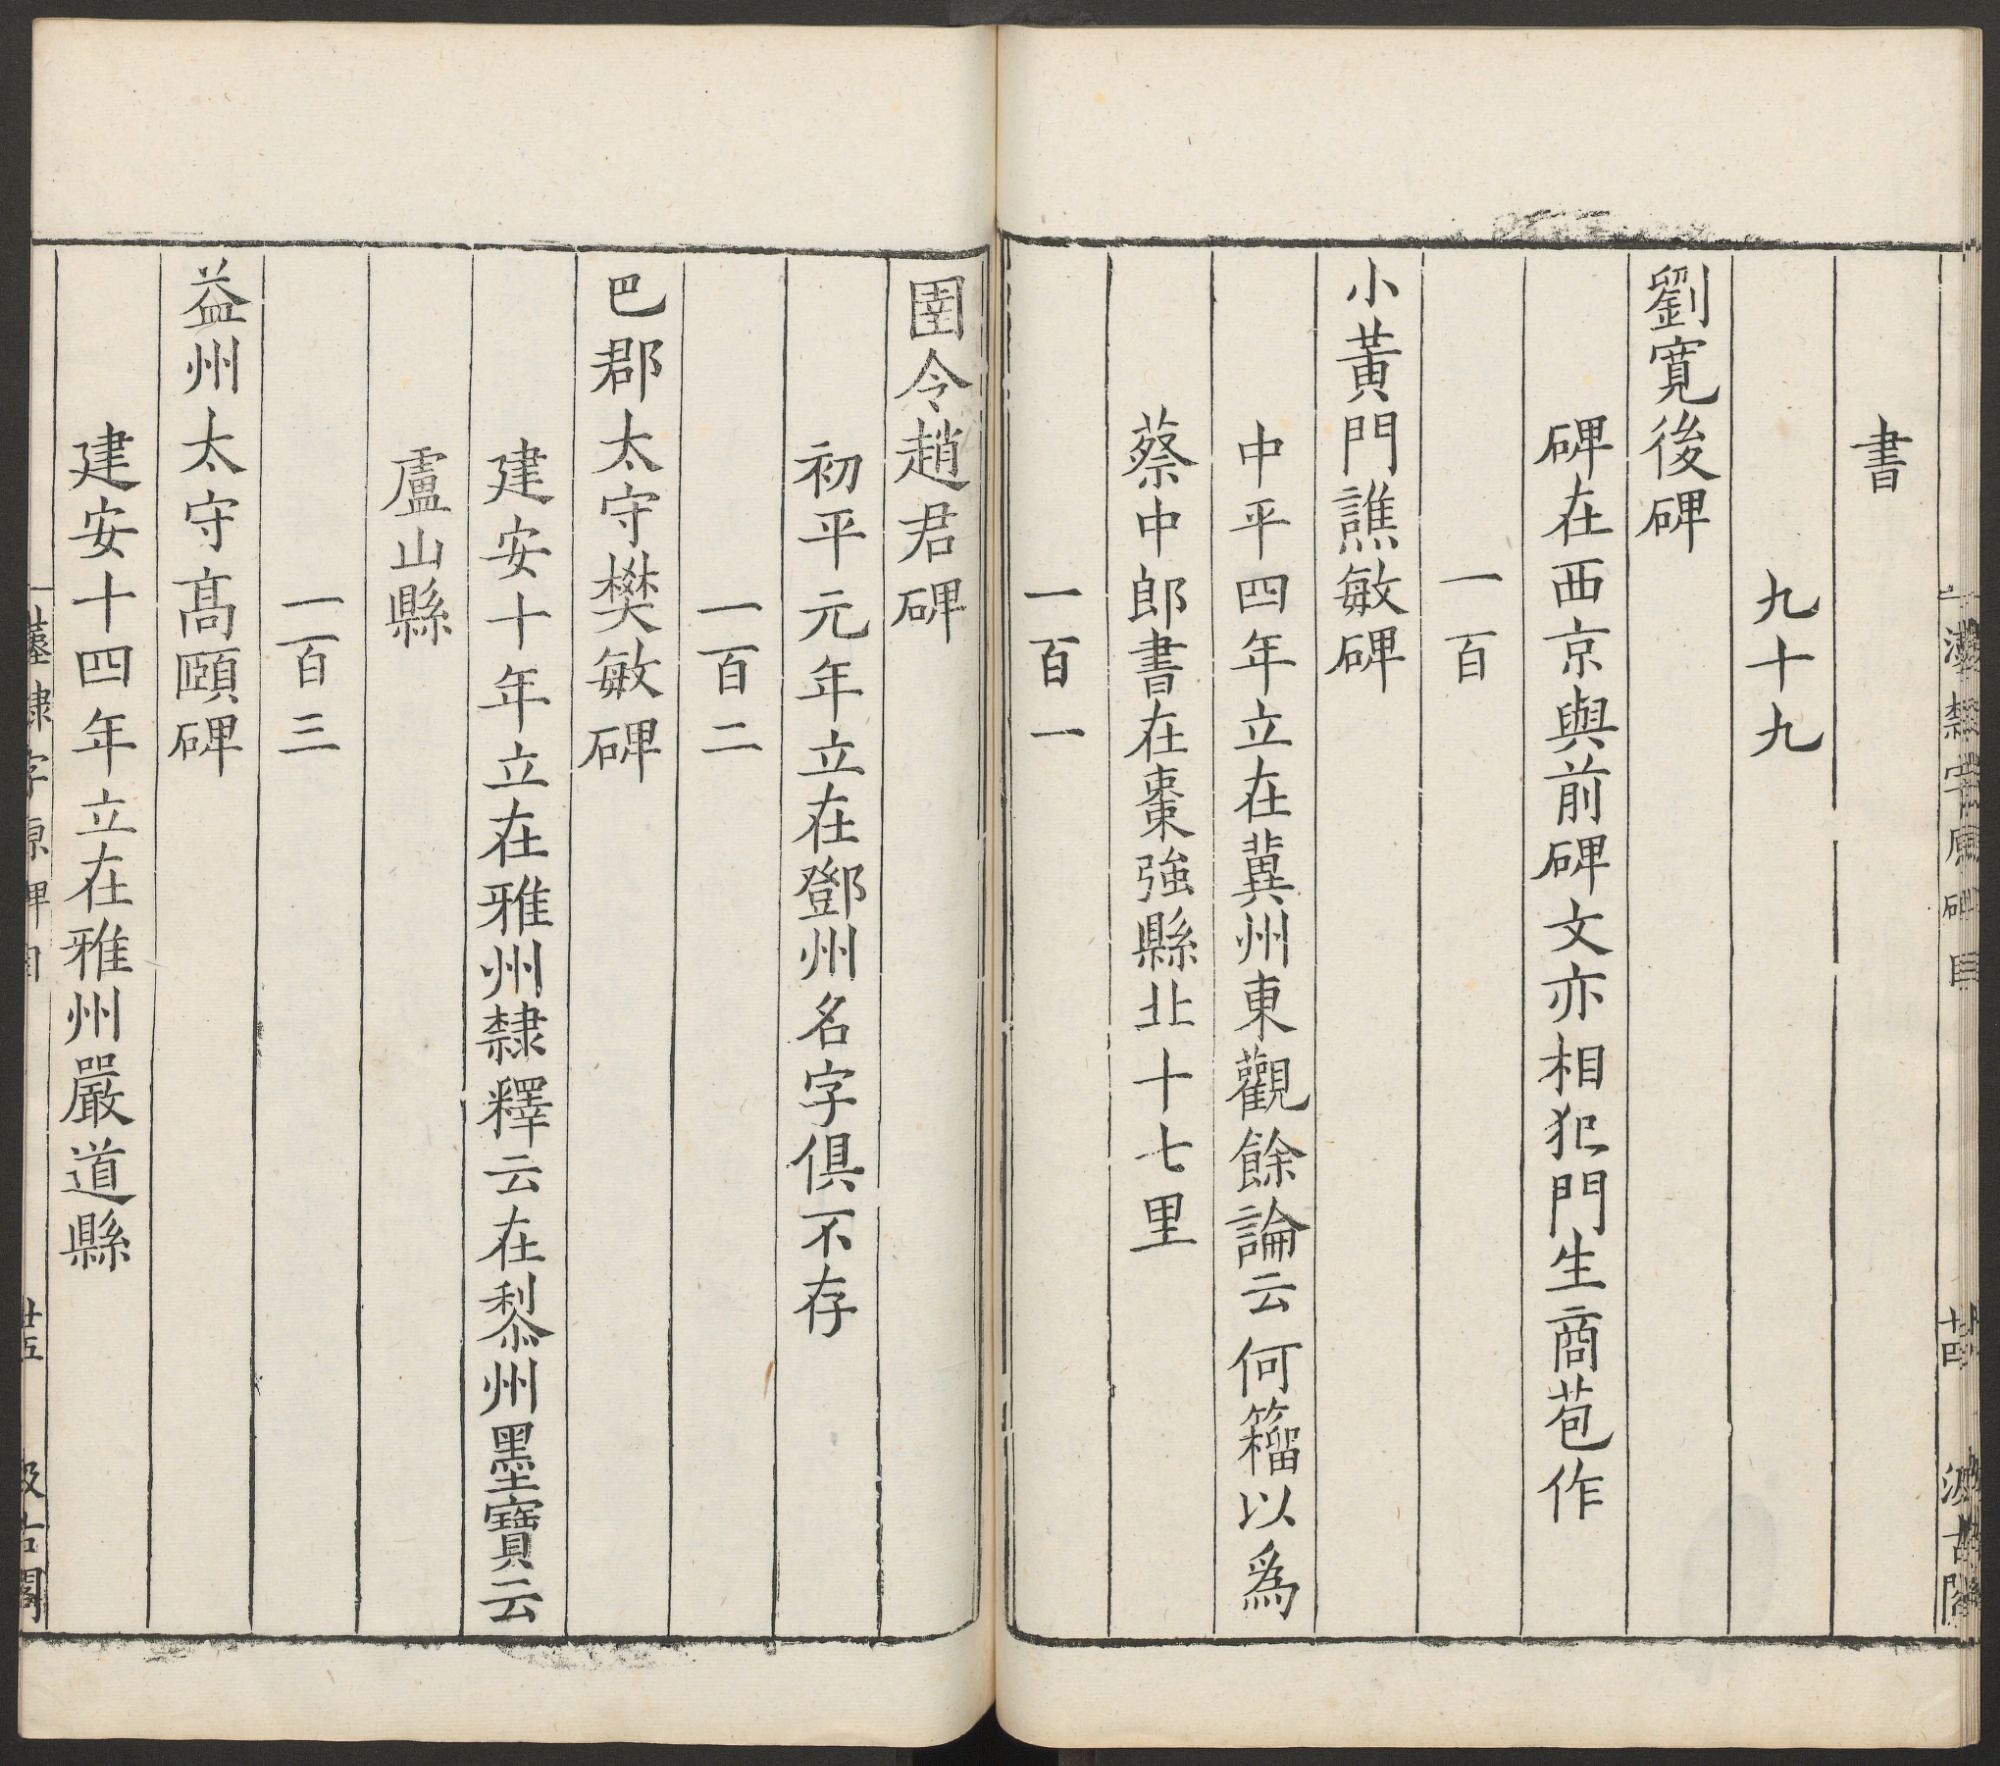 書
九十九
劉寬後碑
碑在西京與前碑文亦相犯門生商苞作
一百
小黃門譙敏碑
中平四年立在冀州東觀餘論云何籕以為
蔡中郎書在棗強縣北十七里
一百一
圉令趙君碑
初平元年立在鄧州名字俱不存
一百二
巴郡太守樊敏碑
建安十年立在雅州隸釋云在黎州墨寶云
盧山縣
一百三
益州太守高頤碑
建安十四年立在雅州嚴道縣
隸字原碑目
廿五
汲古閣